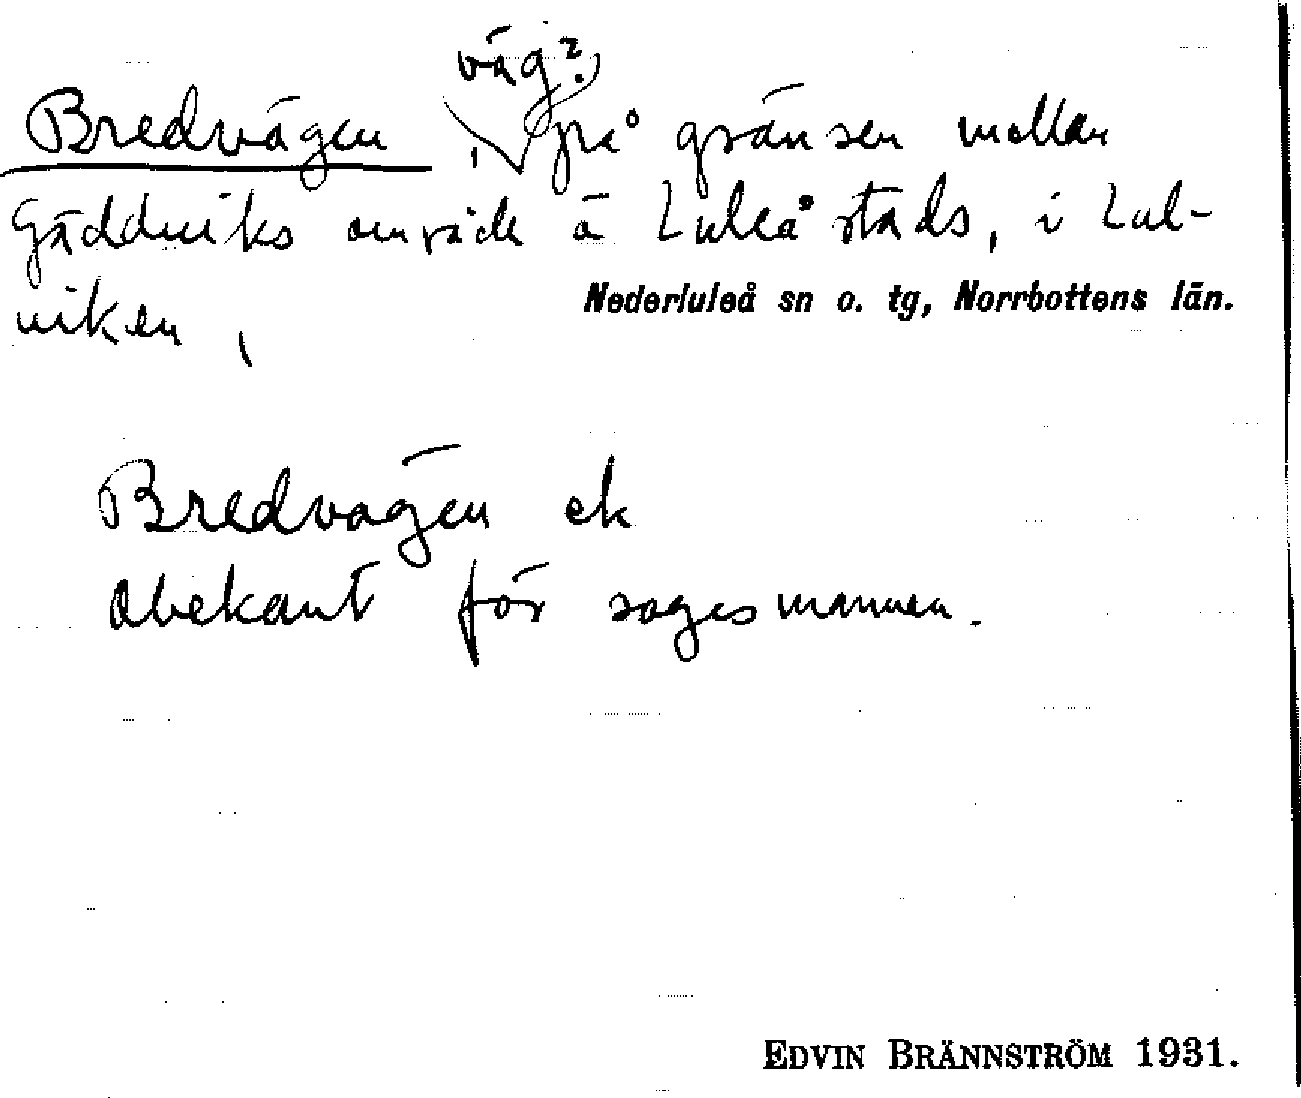 väg?
Bredvägen, på gränsen mellan
Gäddviks område å Luleå stads, i Lul-
viken,
Nederluleå sn o. tg, Norrbottens län.
Bredvägen ek
Obekant för sagesmannen.
EDVIN BRÄNNSTRÖM 1931.